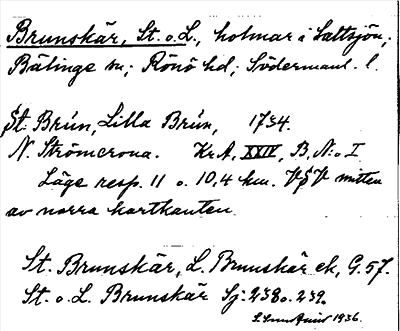 Brunskär, St. o. L., holmar i Saltsjön;
Bälinge sn; Rönö hd; Södermanl. l.
St. Brún, Lilla Brún, 1734.
N. Strömcrona. Kr.A, XXIV, B, N:o I
Läge resp. 11 o. 10,4 km. VSV mitten
av norra kartkanten.
St. Brunskär, L. Brunskär ek, G. 57.
St. o. L. Brunskär Sj: 238 o. 239.
1936.